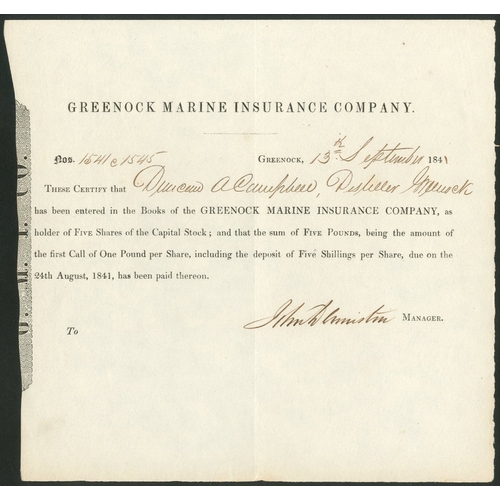 GREENOCK MARINE INSURANCE COMPANY.
Nos. 1541 @ 1545 GREENOCK, 13th September 1841
THESE CERTIFY that Duncan A Campbell, Distiller Greenock
has been entered in the Books of the GREENOCK MARINE INSURANCE COMPANY, as
holder of FIVE Shares of the Capital Stock; and that the sum of FIVE POUNDS, being the amount of
the first Call of One Pound per Share, including the deposit of Five Shillings per Share, due on the
24th August, 1841, has been paid thereon.
John Denniston MANAGER.
To
G. M. I. CO.